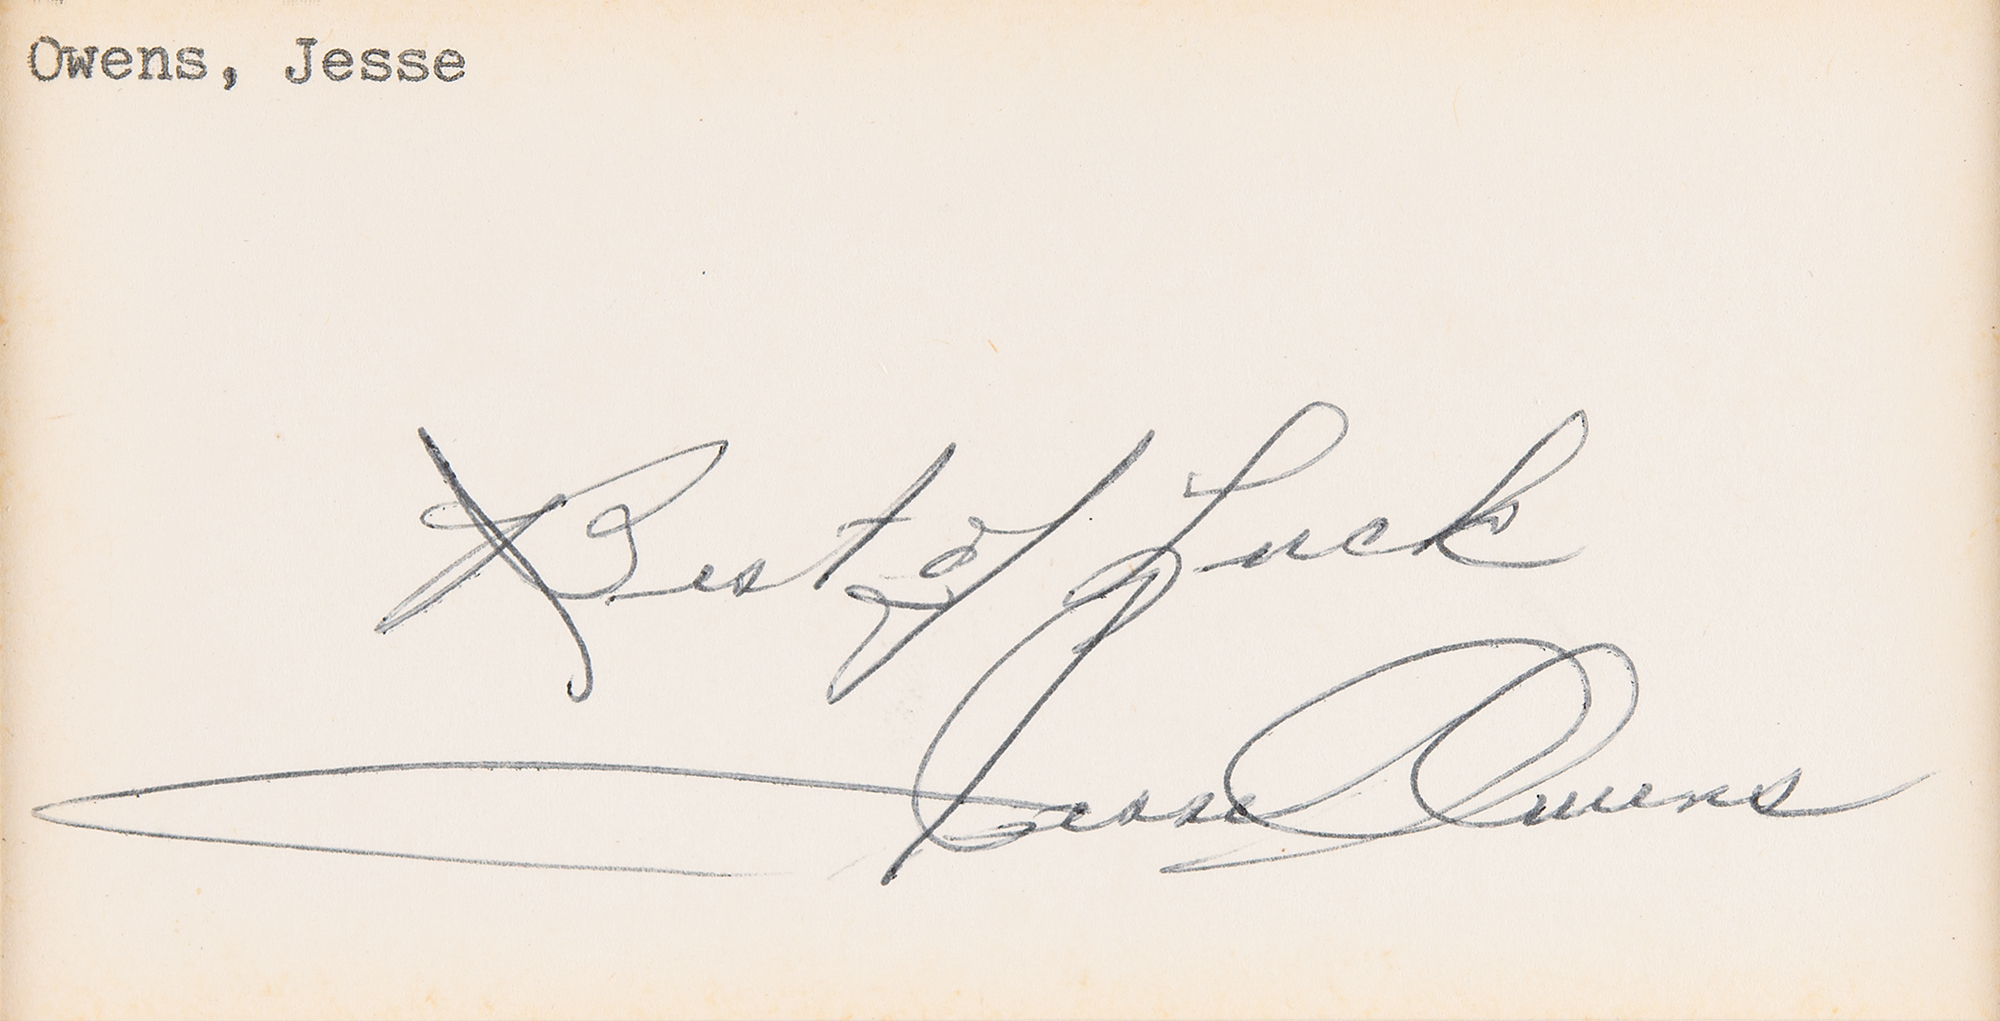 Owens, Jesse
Best of Luck
Jesse Owens